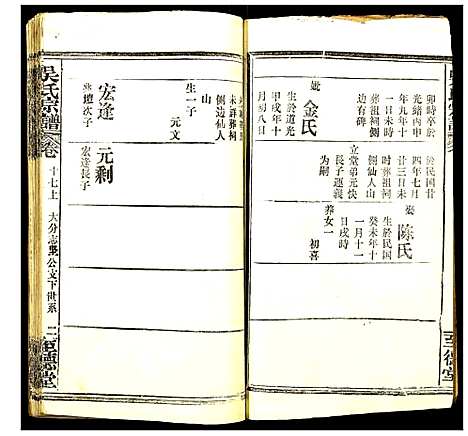 卯時卒於
光緒丙申
年九月十
葬祖祠側
邊有碑
妣金氏
生於道光
甲戌年十
月初八日
於民國廿
四年七月
廿三日未
時葬祖祠
側仙人山
立堂弟元快
長子運義
為嗣
娶陳氏
生於民國
癸未年十
一月十一
日戌時
養女一
初喜
至德堂
未詳葬祠
側邊仙人
山
生一子
元文
宏逢
元剩
宏逢長子
吳氏宗譜
卷十七上
大分志堅公支下世系
二
至德堂